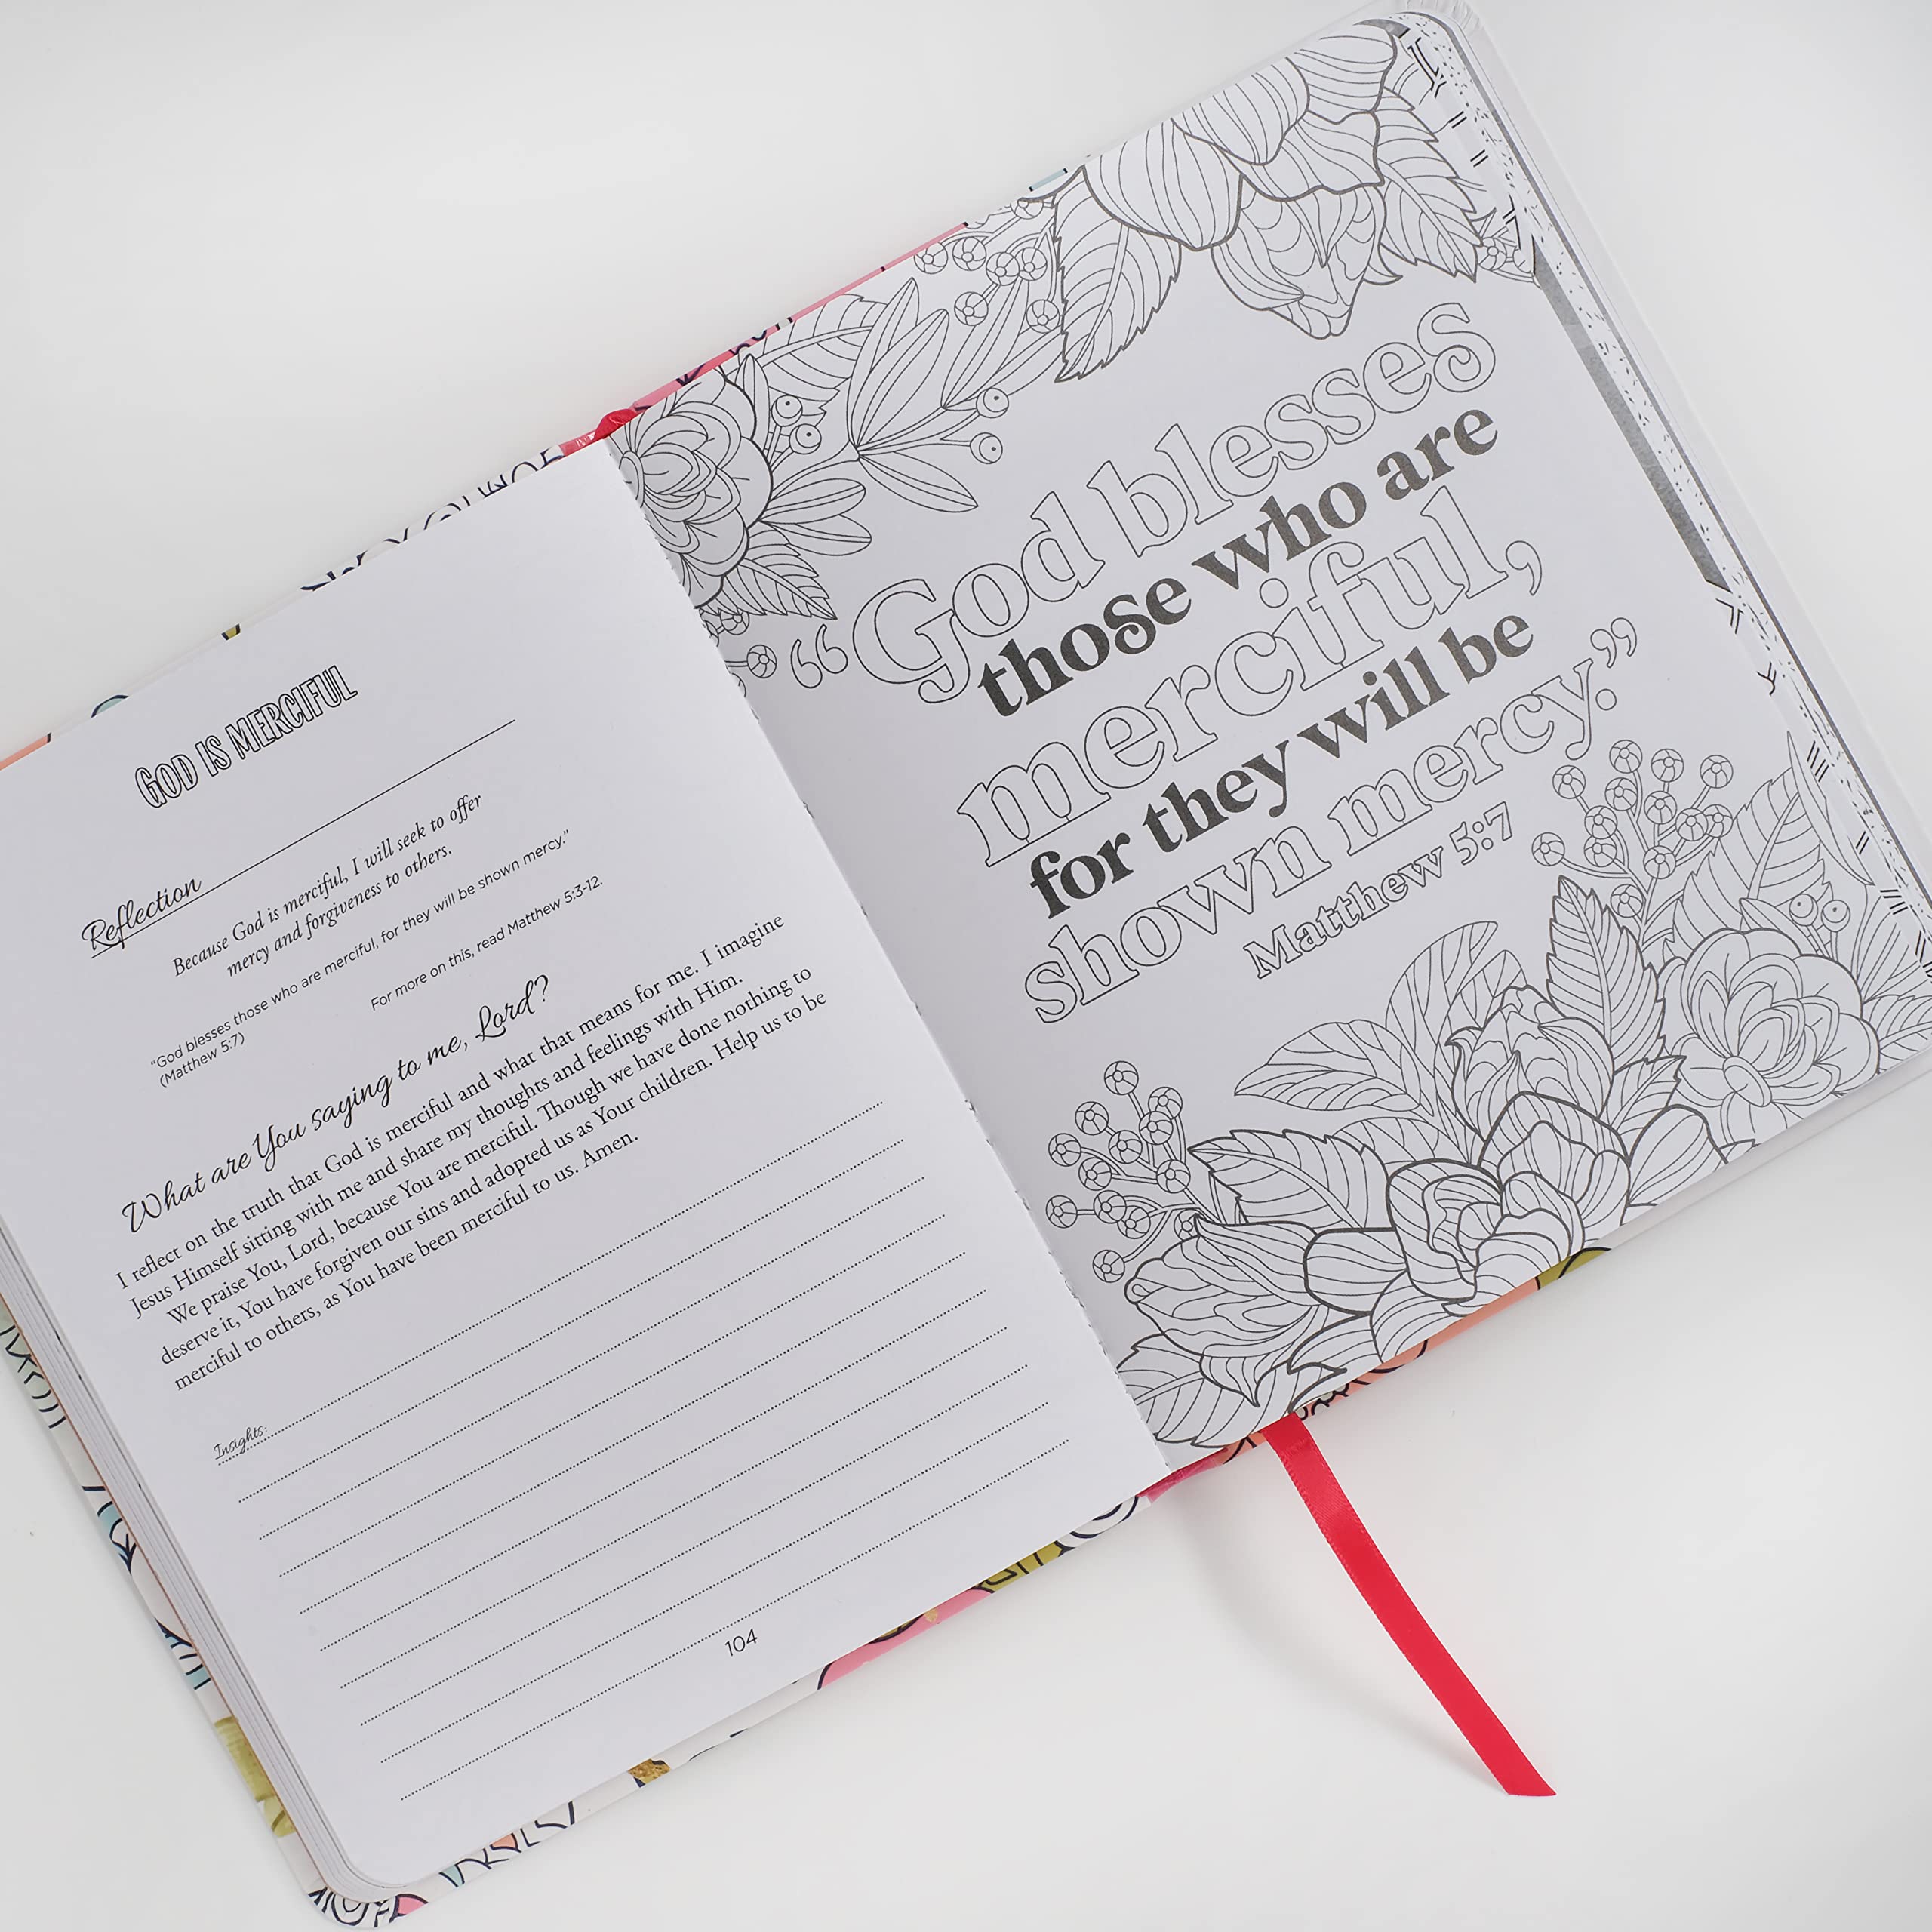 GOD IS MERCIFUL
Reflection
Because God is merciful, I will seek to offer
mercy and forgiveness to others.
“God blesses those who are merciful, for they will be shown mercy.”
(Matthew 5:7)
For more on this, read Matthew 5:3-12.
What are You saying to me, Lord?
I reflect on the truth that God is merciful and what that means for me. I imagine
Jesus Himself sitting with me and share my thoughts and feelings with Him.
We praise You, Lord, because You are merciful. Though we have done nothing to
deserve it, You have forgiven our sins and adopted us as Your children. Help us to be
merciful to others, as You have been merciful to us. Amen.
Insights:
104
“God blesses
those who are
merciful,
for they will be
shown mercy.”
Matthew 5:7